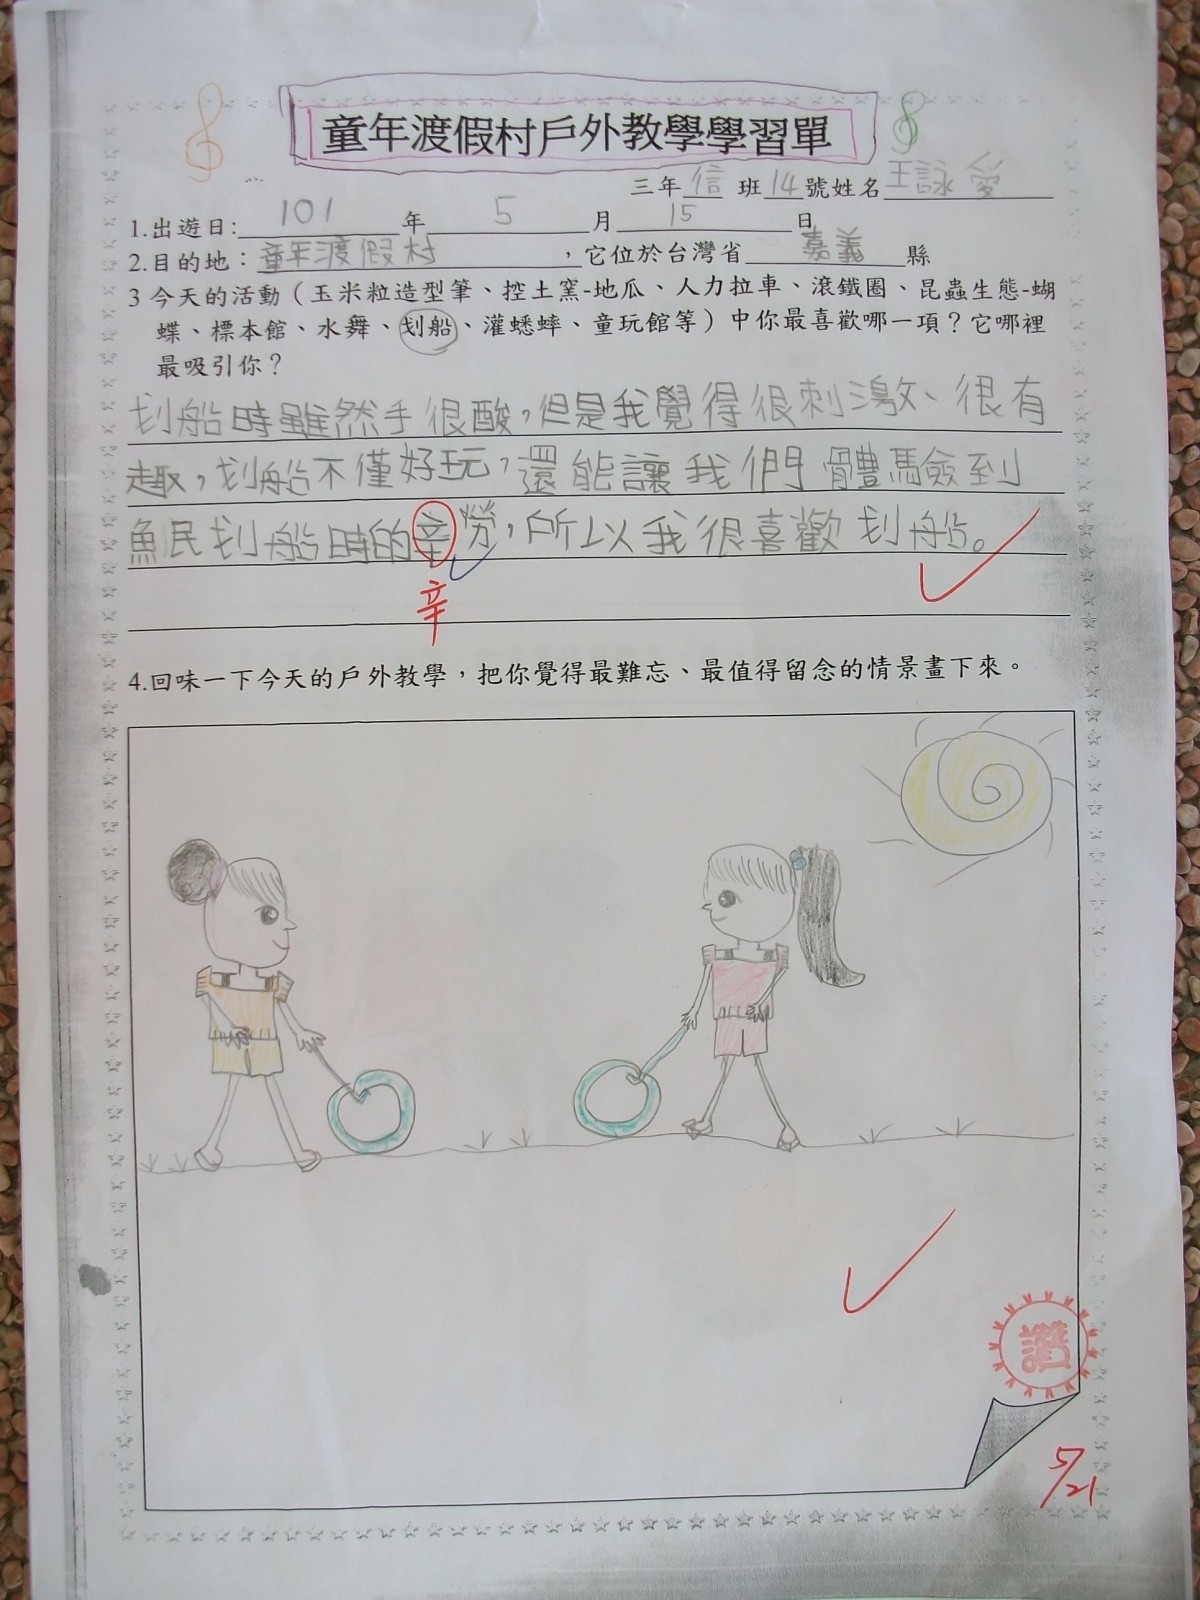 童年渡假村戶外教學學習單
三年信班14號姓名王詠愛
1.出遊日:101年5月15日
2.目的地：童年渡假村，它位於台灣省嘉義縣
3 今天的活動（玉米粒造型筆、控土窯-地瓜、人力拉車、滾鐵圈、昆蟲生態-蝴
蝶、標本館、水舞、划船、灌蟋蟀、童玩館等）中你最喜歡哪一項？它哪裡
最吸引你？
划船時雖然手很酸，但是我覺得很刺激、很有
趣，划船不僅好玩，還能讓我們體驗到
魚民划船時的辛勞，所以我很喜歡划船。
辛
4.回味一下今天的戶外教學，把你覺得最難忘、最值得留念的情景畫下來。
讚
5/21